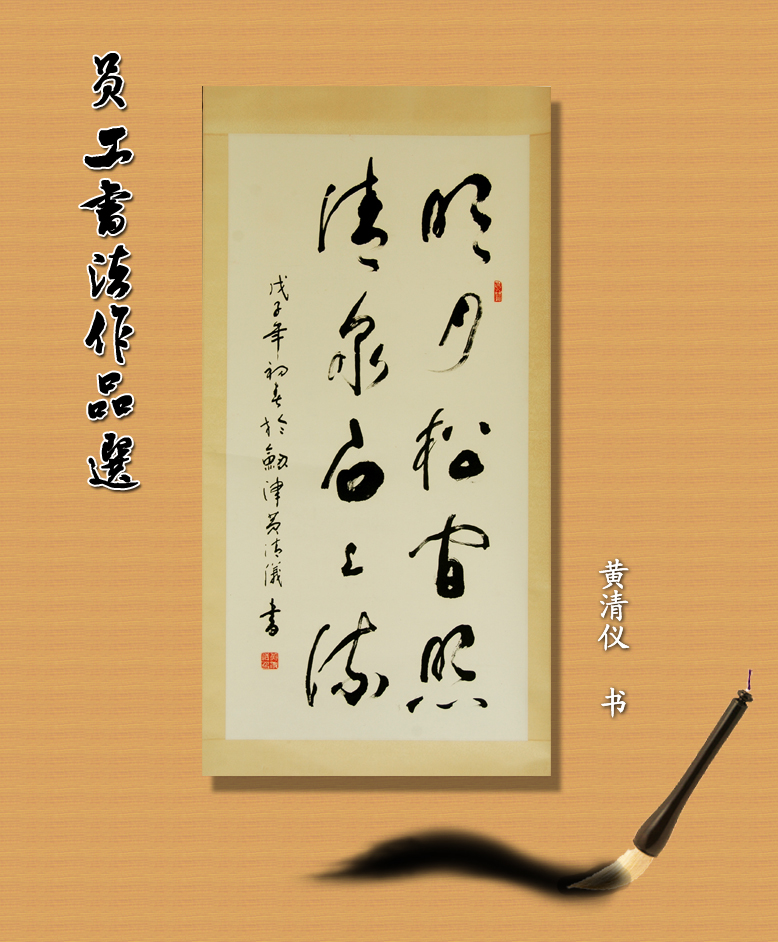 员工書法作品選
明月松间照
清泉石上流
戊子年初春於劍津黄清儀書
黄清仪 书